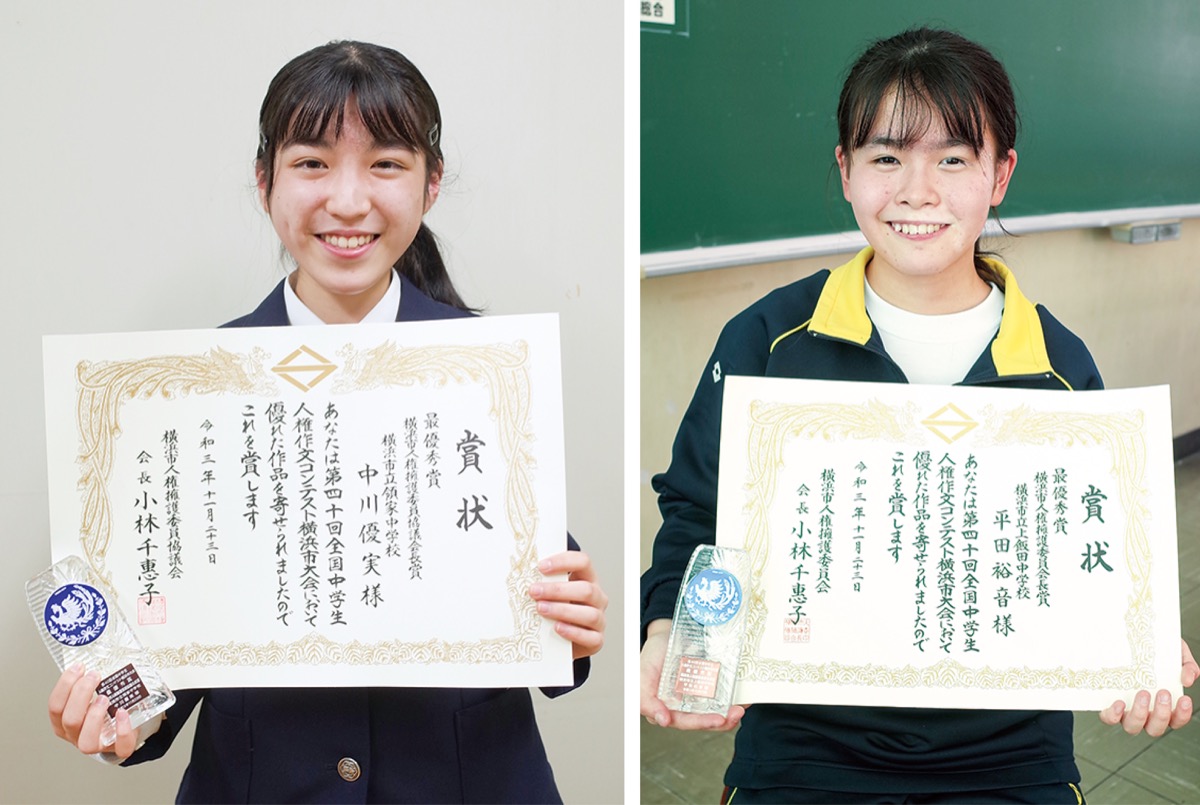 賞状
最優秀賞
横浜市人権擁護委員協議会長賞
横浜市立領家中学校
中川優実様
あなたは第四十回全国中学生
人権作文コンテスト横浜市大会において
優れた作品を寄せられましたので
これを賞します
令和三年十一月二十三日
横浜市人権擁護委員協議会
会長 小林千惠子
総合
賞状
最優秀賞
横浜市人権擁護委員会長賞
横浜市立上飯田中学校
平田裕音様
あなたは第四十回全国中学生
人権作文コンテスト横浜市大会において
優れた作品を寄せられましたので
これを賞します
令和三年十一月二十三日
横浜市人権擁護委員会
会長 小林千惠子